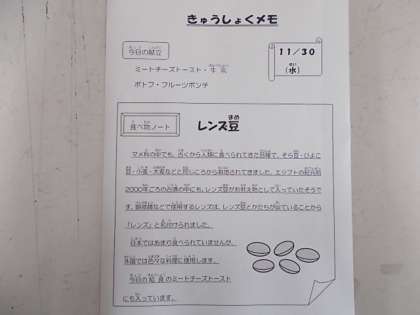 きゅうしょくメモ
今日の献立
11/30
(水)
ミートチーズトースト・牛乳
ポトフ・フルーツポンチ
食べ物ノート
レンズ豆
マメ科の中でも、古くから人類に食べられてきた豆種で、そら豆・ひよこ
豆・小麦・大麦などと同じころから栽培されてきました。エジプトの紀元前
2000年ごろの古墳の中にも、レンズ豆がお供え物として入っていたそうで
す。顕微鏡などで使用するレンズは、レンズ豆とかたちが似ていることから
「レンズ」と名付けられました。
日本ではあまり食べられていませんが、
外国では色々な料理に使用します。
今日の給食のミートチーズトースト
にも入っています。